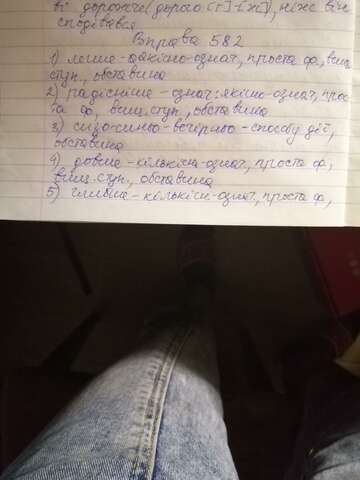 ві дорожче (дорого [г]-[ж]), ніж він
сподівався
Вправа 582
1) легше – якісно-означ, проста ф, вищ.
ступ., обставина
2) радісніше – означ: якісно-означ, прос
та ф, вищ. ступ, обставина
3) сизо-синьо-вечірньо – способу дії,
обставина
4) довше – кількісн-означ, проста ф,
вищ. ступ., обставина
5) глибше – кількісн-означ, проста ф,